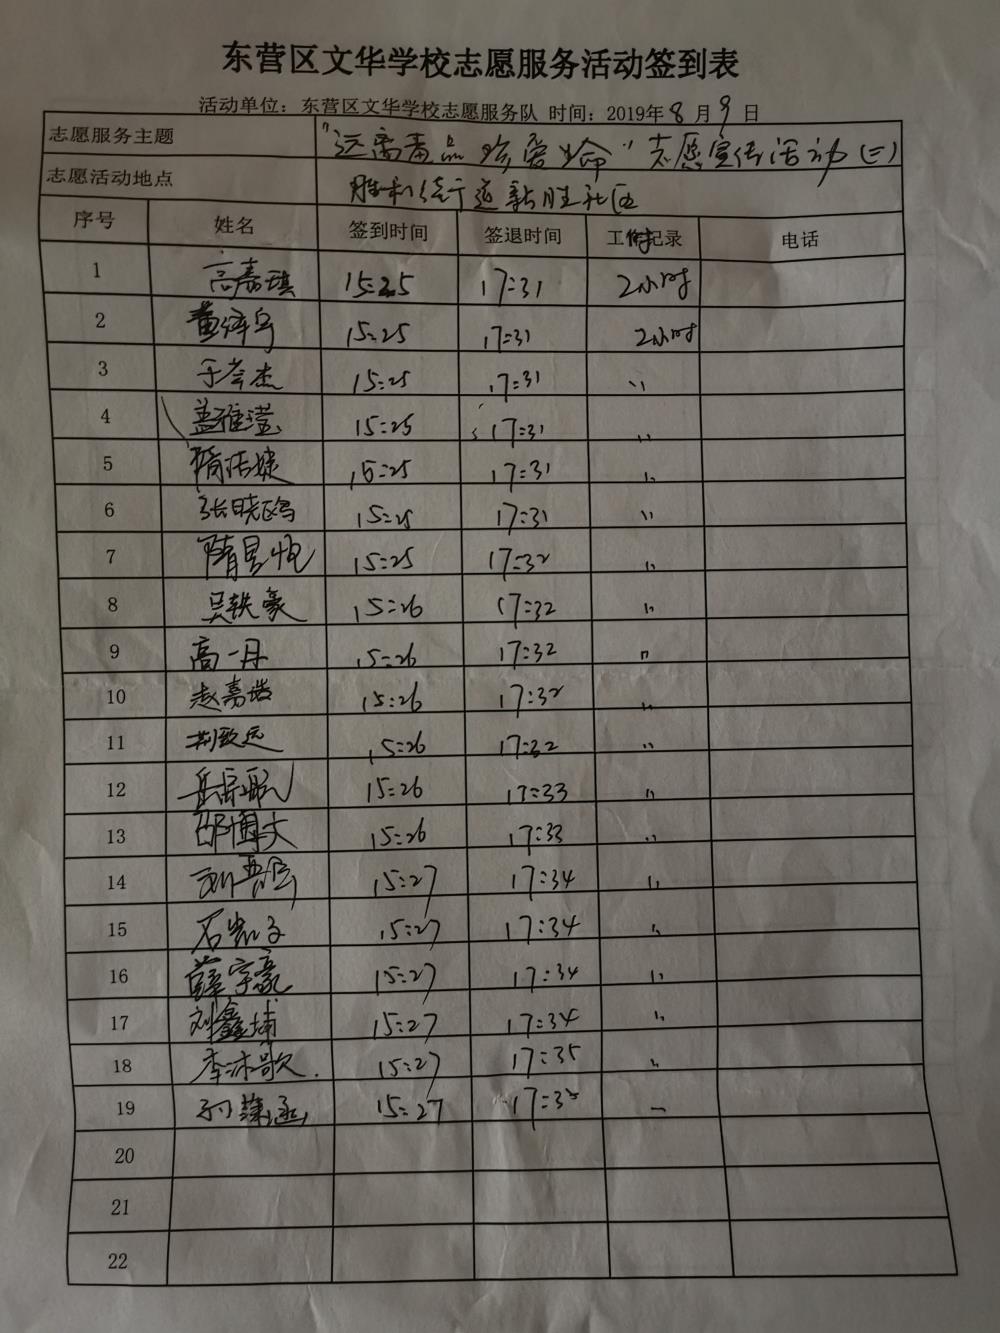 东营区文华学校志愿服务活动签到表
活动单位：东营区文华学校志愿服务队 时间：2019年8月9日
志愿服务主题 “远离毒品 珍爱生命”志愿宣传活动(三)
志愿活动地点 胜利街道新胜社区
序号 姓名 签到时间 签退时间 工作记录 电话
1 高嘉琪 15:25 17:31 2小时
2 董烨宇 15:25 17:31 2小时
3 于岑杰 15:25 17:31 〃
4 盖雅滢 15:25 17:31 〃
5 隋洁婕 15:25 17:31 〃
6 张晓鸥 15:25 17:31 〃
7 隋昱 15:25 17:32 〃
8 吴轶豪 15:26 17:32 〃
9 高一丹 15:26 17:32 〃
10 赵嘉浩 15:26 17:32 〃
11 荆致远 15:26 17:32 〃
12 岳宗 15:26 17:33 〃
13 邵博文 15:26 17:33 〃
14 刘 15:27 17:34 〃
15 石 子 15:27 17:34 〃
16 薛宇豪 15:27 17:34 〃
17 刘鑫埔 15:27 17:34 〃
18 李沐歌. 15:27 17:35 〃
19 涵 15:27 17:35 〃
20
21
22